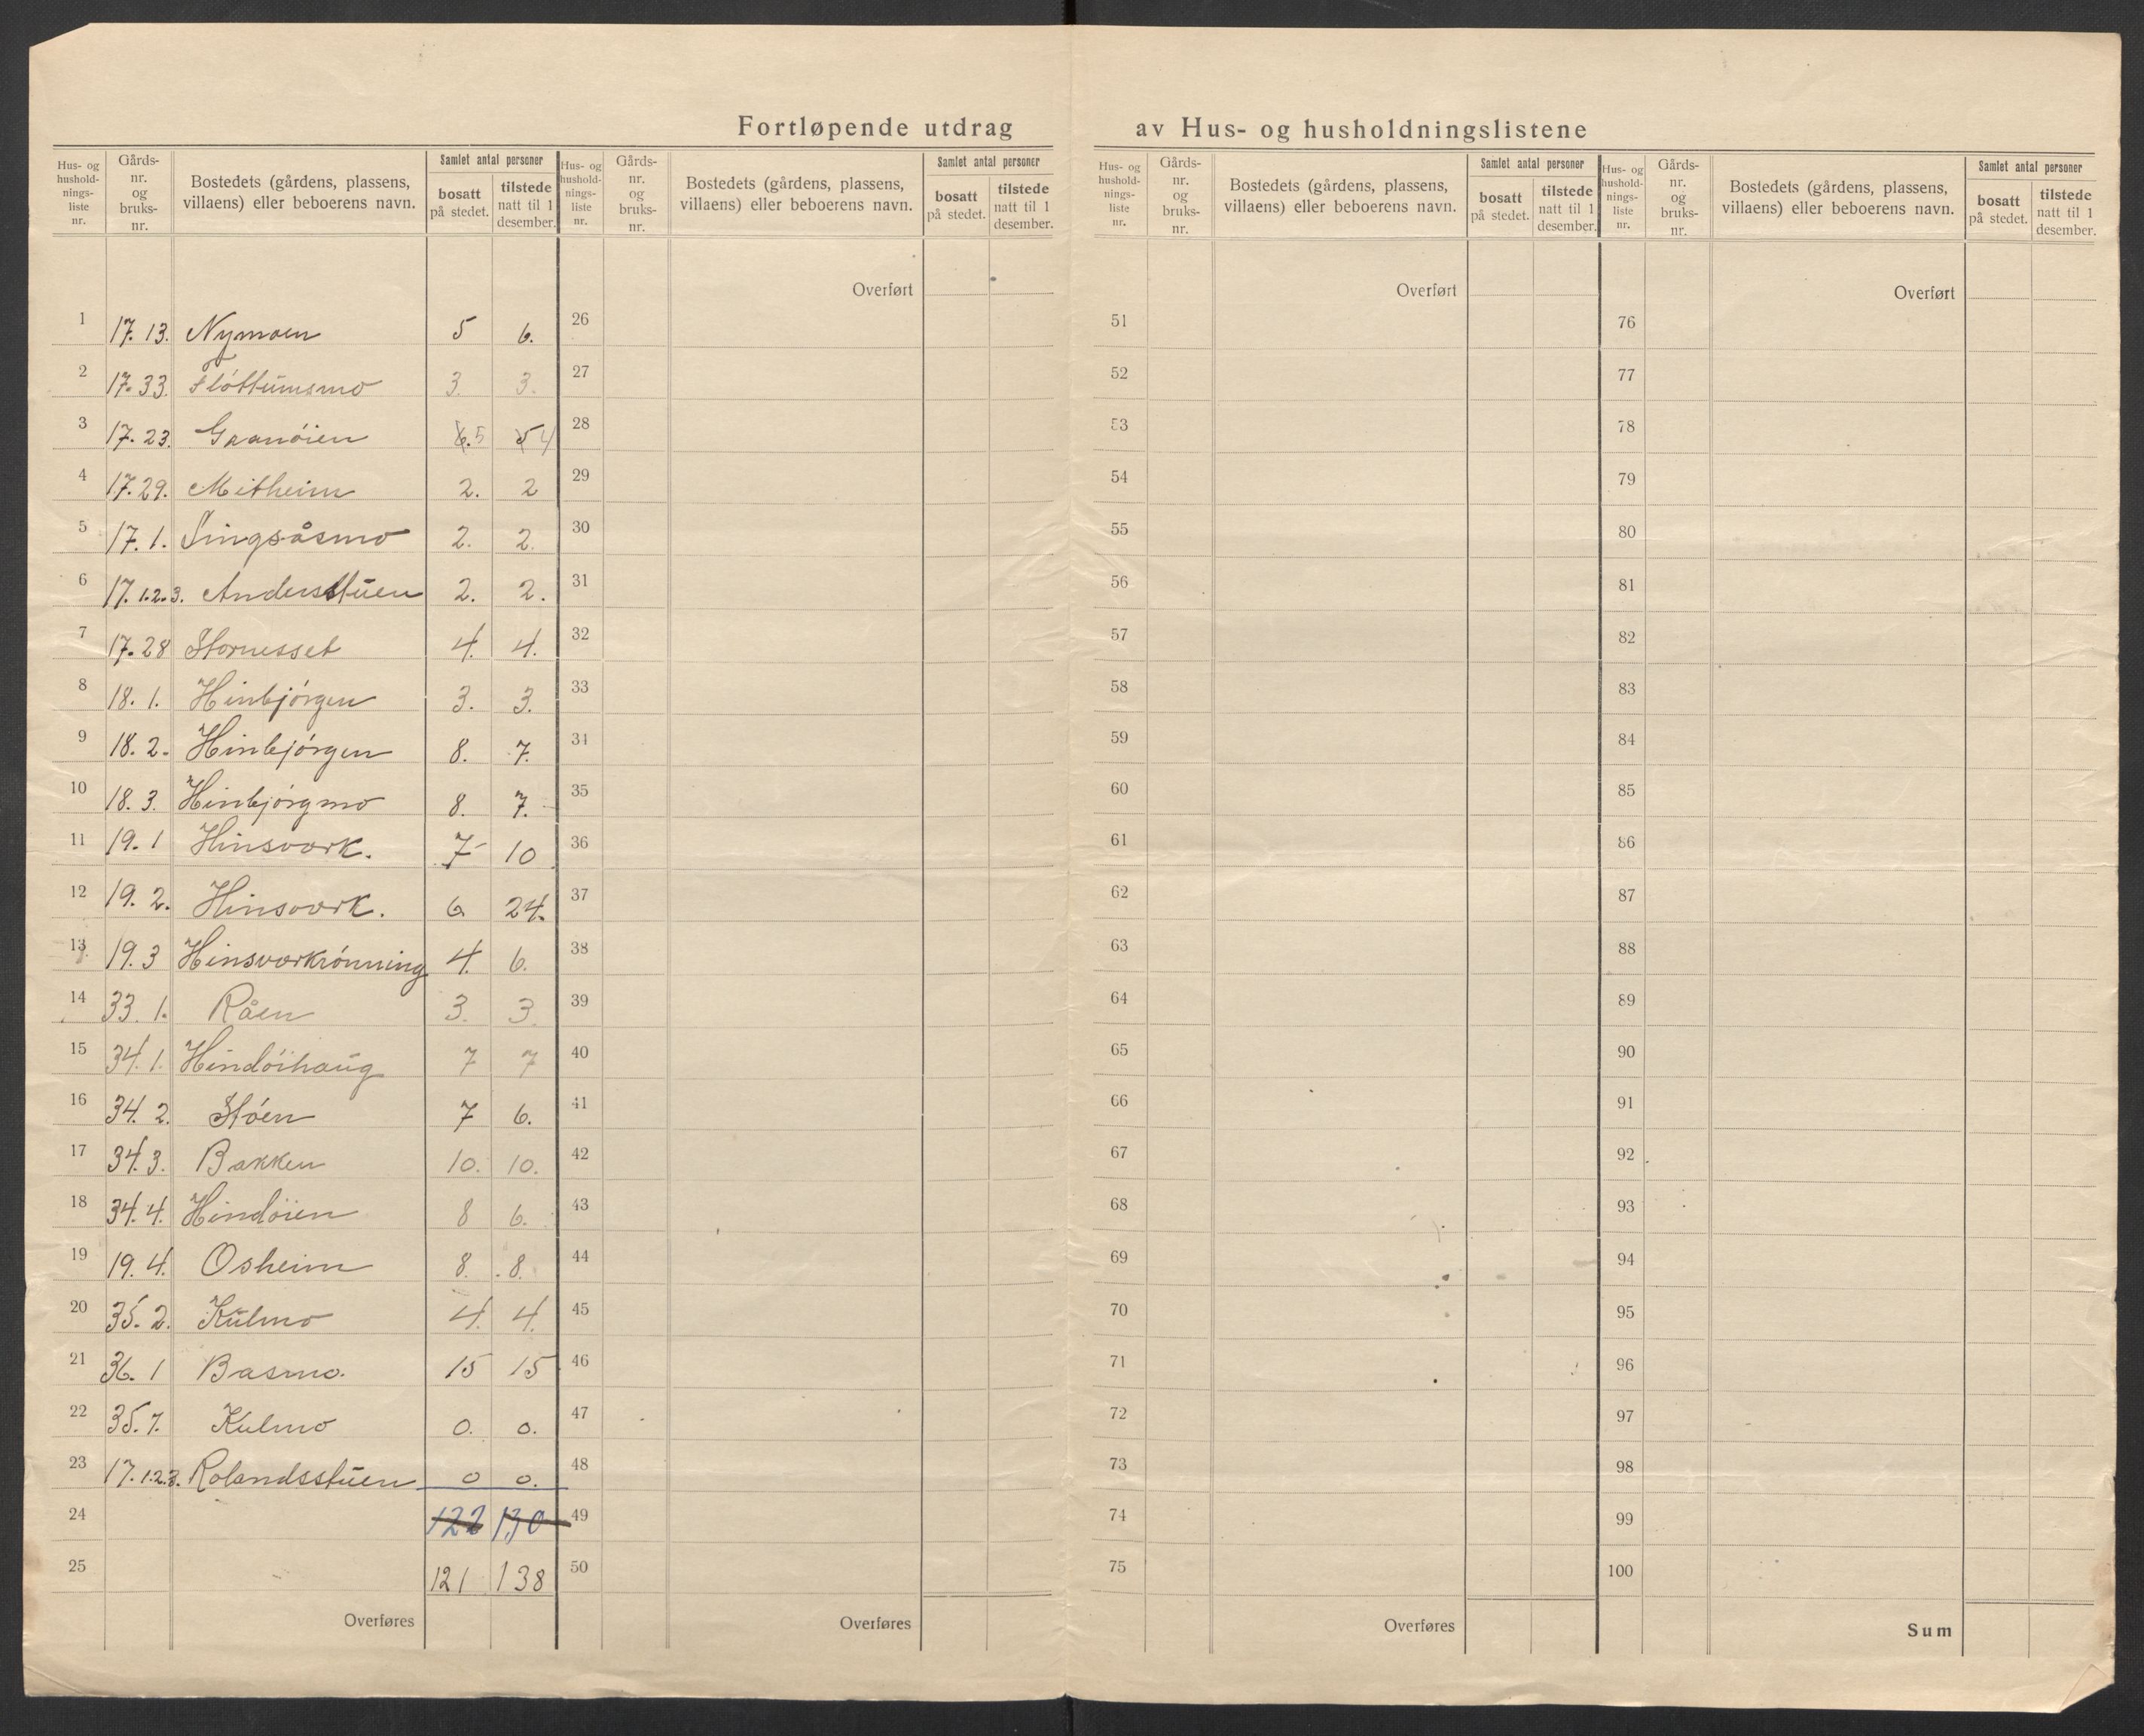 Fortløpende utdrag av Hus- og husholdningslistene
Hus- og hushold- nings- liste nr. | Gårds- nr. og bruks- nr. | Bostedets (gårdens, plassens, villaens) eller beboerens navn. | Samlet antal personer | bosatt på stedet. | tilstede natt til 1 desember.
1 17. 13. Nymoen 5 6.
2 17. 33. Fløttumsmo 3. 3.
3 17. 23. Granöien 6. 5 5 4
4 17. 29. Mitheim 2. 2
5 17. 1. Singsåsmo 2. 2.
6 17. 1.2.3. Andersstuen 2. 2.
7 17. 28 Stornesset 4. 4.
8 18. 1. Hinbjörgen 3. 3.
9 18. 2. Hinbjörgen 8. 7.
10 18. 3. Hinbjörgmo 8. 7.
11 19. 1 Hinsværk. 7 10
12 19. 2. Hinsværk. 6 24.
13 19. 3 Hinsværkrönning 4. 6.
14 33. 1. Råen 3. 3.
15 34. 1. Hindöihaug 7 7
16 34. 2. Stöen 7 6.
17 34. 3. Bakken 10. 10.
18 34. 4. Hindöien 8 6.
19 19. 4. Osheim 8. 8.
20 35. 2. Kulmo 4. 4.
21 36. 1 Basmo. 15 15
22 35. 7. Kulmo 0. 0.
23 17. 1.2.3. Rolandsstuen 0 0.
24 122 130
25 121 138
Overføres
Hus- og hushold- nings- liste nr. | Gårds- nr. og bruks- nr. | Bostedets (gårdens, plassens, villaens) eller beboerens navn. | Samlet antal personer | bosatt på stedet. | tilstede natt til 1 desember.
Overført
26
27
28
29
30
31
32
33
34
35
36
37
38
39
40
41
42
43
44
45
46
47
48
49
50
Overføres
Hus- og hushold- nings- liste nr. | Gårds- nr. og bruks- nr. | Bostedets (gårdens, plassens, villaens) eller beboerens navn. | Samlet antal personer | bosatt på stedet. | tilstede natt til 1 desember.
Overført
51
52
53
54
55
56
57
58
59
60
61
62
63
64
65
66
67
68
69
70
71
72
73
74
75
Overføres
Hus- og hushold- nings- liste nr. | Gårds- nr. og bruks- nr. | Bostedets (gårdens, plassens, villaens) eller beboerens navn. | Samlet antal personer | bosatt på stedet. | tilstede natt til 1 desember.
Overført
76
77
78
79
80
81
82
83
84
85
86
87
88
89
90
91
92
93
94
95
96
97
98
99
100
Sum